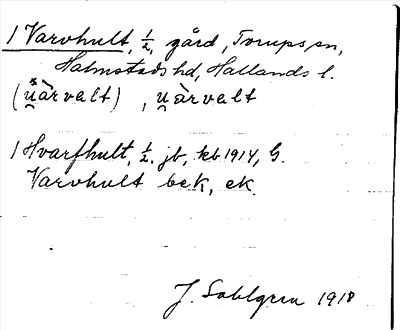 1 Varvhult, ½, gård, Torups sn,
Halmstads hd, Hallands l.
(u̯àrvelt), u̯àrvelt
1 Hvarfhult, ½, jb, kb 1914, G.
Varvhult bek, ek.
J. Sahlgren 1918